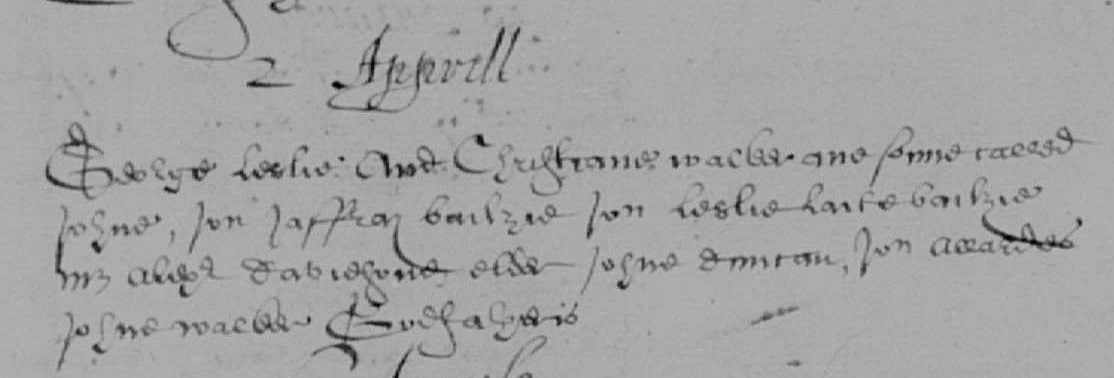 2 Appryll
George Leslie And Christiane walker ane sonne called
Johne, Jon Jaffray bailzie Jon Leslie laite bailzie
mr alexr davidsone elder Johne duncan, Jon
Johne walker Godfatheris